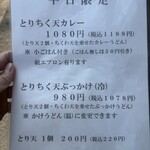 平日限定
とりちく天カレー
1080円（税込1188円）
（とり天2個・ちくわ天を乗せたカレーうどん）
※ 小ごはん付き
紙エプロン有ります
とりちく天ぶっかけ（冷）
980円（税込1078円）
（とり天2個・ちくわ天を乗せたぶっかけうどん）
※ かけうどん（温）に変更できます
とり天 1個 200円（税込220円）